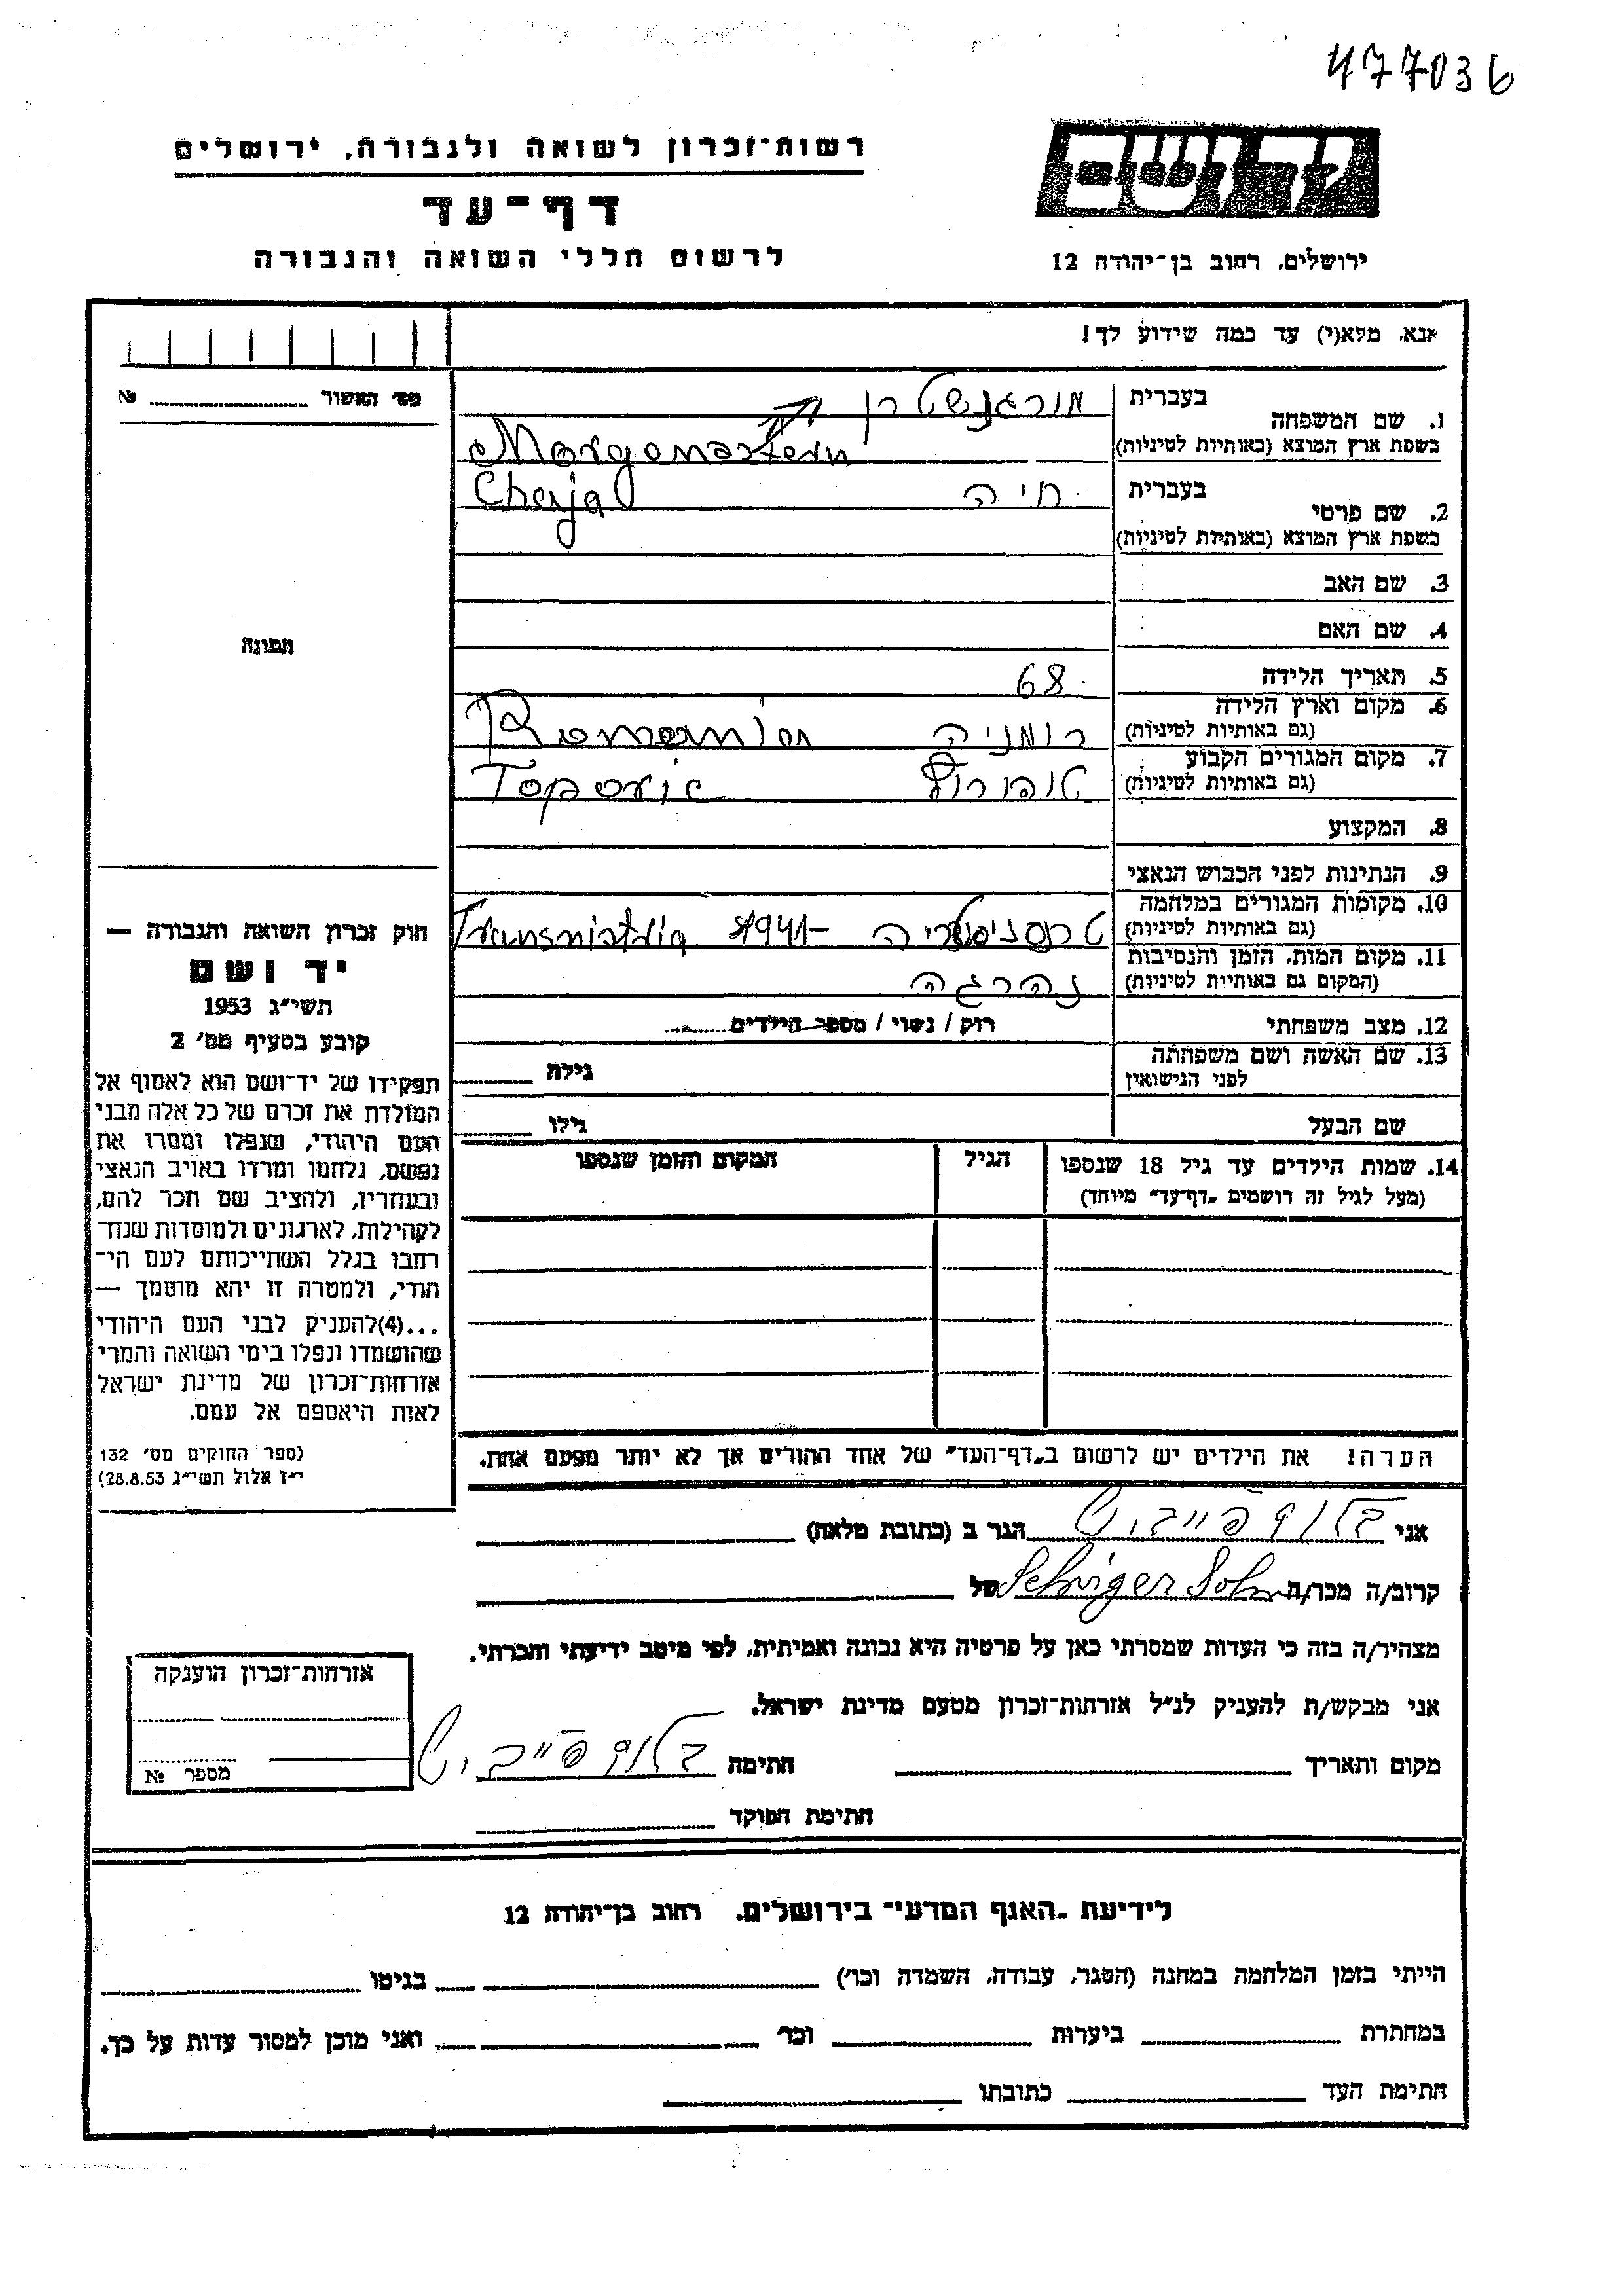 477036
רשות-זכרון לשואה ולגבורה, ירושלים
דף-עד
לרשום חללי השואה והגבורה
ירושלים, רחוב בן-יהודה 12
אנא, מלא(י) עד כמה שידוע לך!
מס׳ האשור № 
בעברית מורגנשטרן
1. שם המשפחה
בשפת ארץ המוצא (באותיות לטיניות) Morgenstern
בעברית חיה Chaja
2. שם פרטי
בשפת ארץ המוצא (באותיות לטיניות)
3. שם האב
4. שם האם
תמונה
5. תאריך הלידה 68
6. מקום וארץ הלידה
(גם באותיות לטיניות) רומניה Romania
7. מקום המגורים הקבוע
(גם באותיות לטיניות)
8. המקצוע
9. הנתינות לפני הכבוש הנאצי
10. מקומות המגורים במלחמה
(גם באותיות לטיניות) טרנסניסטריה 1941- Transnistria
11. מקום המות, הזמן והנסיבות
(המקום גם באותיות לטיניות) נהרגה
12. מצב משפחתי רוק / נשוי / מספר הילדים
13. שם האשה ושם משפחתה
לפני הנישואין גילה
שם הבעל גילו
14. שמות הילדים עד גיל 18 שנספו הגיל המקום והזמן שנספו
(מעל לגיל זה רושמים „דף-עד״ מיוחד)
הערה! את הילדים יש לרשום ב„דף-העד״ של אחד ההורים אך לא יותר מפעם אחת.
חוק זכרון השואה והגבורה —
יד ושם
תשי״ג 1953
קובע בסעיף מס׳ 2
תפקידו של יד-ושם הוא לאסוף אל
המולדת את זכרם של כל אלה מבני
העם היהודי, שנפלו ומסרו את
נפשם, נלחמו ומרדו באויב הנאצי
ובעוזריו, ולהציב שם וזכר להם,
לקהילות, לארגונים ולמוסדות שנח-
רחבו בגלל השתייכותם לעם הי-
הודי, ולמטרה זו יהא מוסמך —
...(4)להעניק לבני העם היהודי
שהושמדו ונפלו בימי השואה והמרי
אזרחות-זכרון של מדינת ישראל
לאות היאספם אל עמם.
(ספר החוקים מס׳ 132
י״ז אלול תשי״ג 28.8.53)
אני הגר ב (כתובת מלאה)
קרוב/ה מכר/ה של
מצהיר/ה בזה כי העדות שמסרתי כאן על פרטיה היא נכונה ואמיתית, לפי מיטב ידיעתי והכרתי.
אני מבקש/ת להעניק לנ״ל אזרחות-זכרון מטעם מדינת ישראל.
מקום ותאריך חתימה
חתימת הפוקד
אזרחות-זכרון הוענקה
מספר №
לידיעת „האגף המדעי״ בירושלים, רחוב בן-יהודה 12
הייתי בזמן המלחמה במחנה (הסגר, עבודה, השמדה וכו׳) בגיטו
במחתרת ביערות וכו׳ ואני מוכן למסור עדות על כך.
חתימת העד כתובתו